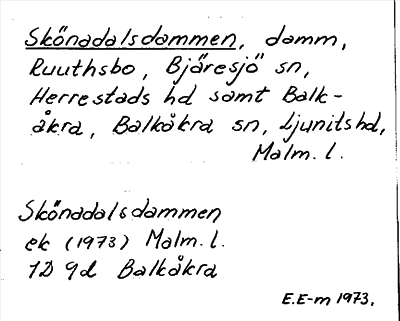 Skönadalsdammen, damm,
Ruuthsbo, Bjäresjö sn,
Herrestads hd samt Balk-
åkra, Balkåkra sn, Ljunits hd,
Malm. l.
Skönadalsdammen
ek (1973) Malm. l.
1D 9d Balkåkra
E.E-m 1973.